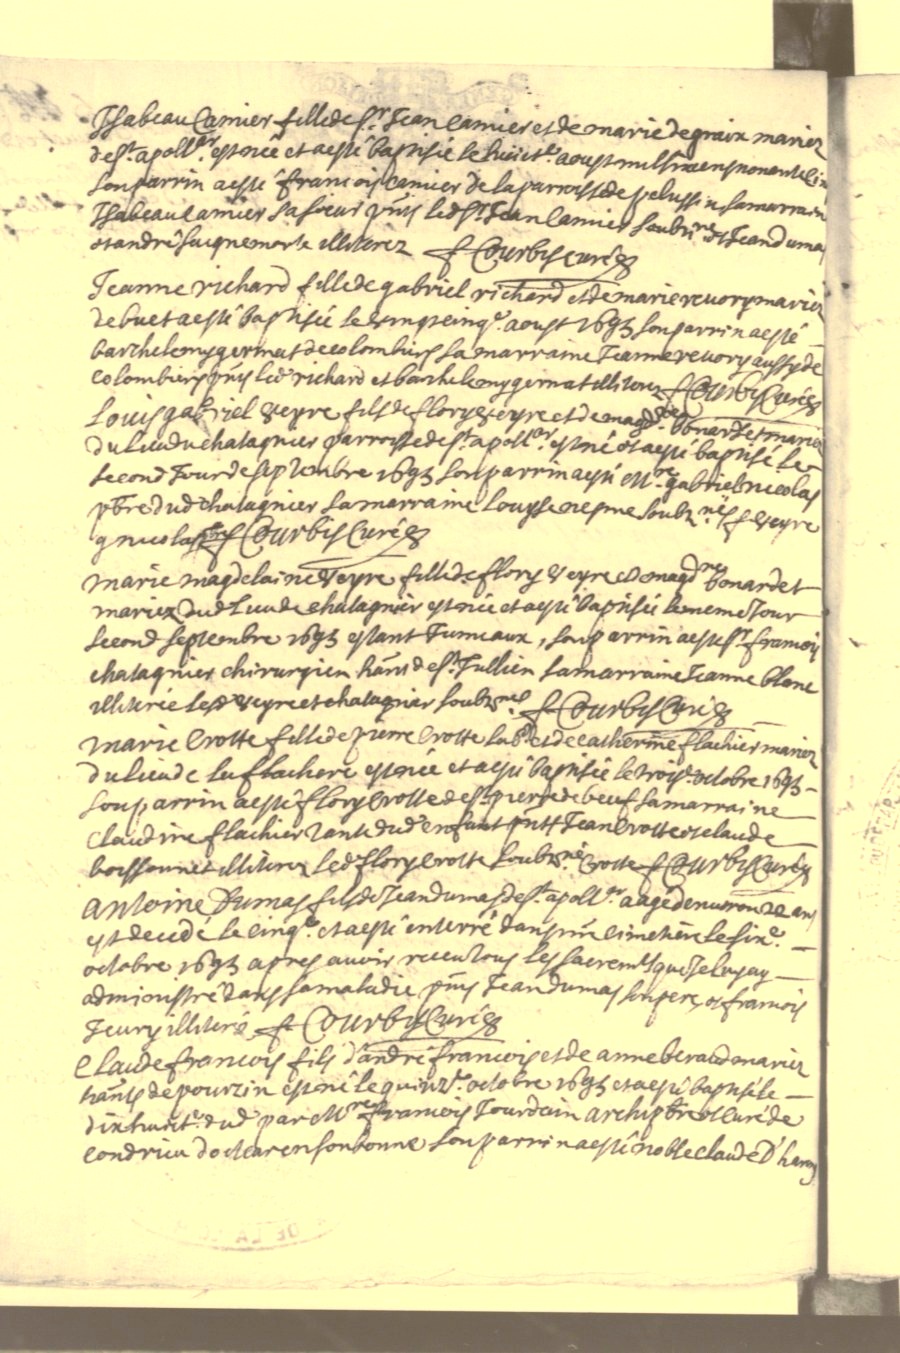 Isabeau Camier fille de Sr. Jean Camier et de marie degraix mariez
de St. apollre. est née et a esté baptisée le huicte. aoust mil six cens nonante cin
son parrin a esté francois Camier de la parroisse de pelussin sa marraine
Isabeau Camier sa soeur pnts led Sr. Jean Camier soubzne. et Jean dumas
et andré illiterez f Courbis curé
Jeanne richard fille de gabriel richard et de marie revory mariez
de buet a esté baptisée le vingt cinqe. aoust 1695 son parrin a esté
barthelemy germat de colombiers sa marraine Jeanne revory aussy de
colombiers pnts led richard et barthelemy germat illiterez f Courbis Curé
Louis gabriel veyre fils de flory veyre et de magdne bonardet mariez
du lieu du chatagnier parroisse de St. apollre. est né et a esté baptisé le
second Jour de septembre 1695 son parrin a esté Mre. gabriel nicolas
pbre dud chatagnier sa marraine Louyse nesme soubznés f veyre
g nicolas pbre f Courbis Curé
marie magdelaine veyre fille de flory veyre et de magdne bonardet
mariez dud Lieu de chatagnier est née et a esté baptisée le meme Jour
second septembre 1695 estant Jumeaux, son parrin a esté Sr. francois
chatagnier chirurgien hant de St. Jullien sa marraine Jeanne blanc
illiterée lesd veyre et chatagnier soubznes f Courbis Curé
marie Crotte fille de pierre Crotte labr et de catherine flachier mariez
du Lieu de la flachere est née et a esté baptisée le troise. octobre 1695
son parrin a esté flory Crotte de St. pierre de beuf sa marraine
Claudine flachier tante dud enfant pntz Jean Crotte et claude
boissonnet illiterez led flory Crotte soubzné Crotte f Courbis Curé
antoine Dumas fils de Jean dumas de St. apollre. aagé denviron 22 ans
est decedé le cinqe. et a esté enterré dans nre cimetiere le sixe.
octobre 1695 apres avoir receu tous les sacremts que Je luy ay
administré dans sa maladie pnts Jean dumas son pere, et francois
Jeury illiteré f Courbis Curé
Claude francois fils d'andré francois et de anne beraud mariez
hants de pourzin est né le quinze. octobre 1695 et a esté baptisé le
dixhuicte. dud par Mre francois Jourdain archipbre et curé de
condrieu docteur en sorbonne son parrin a esté noble claude D'